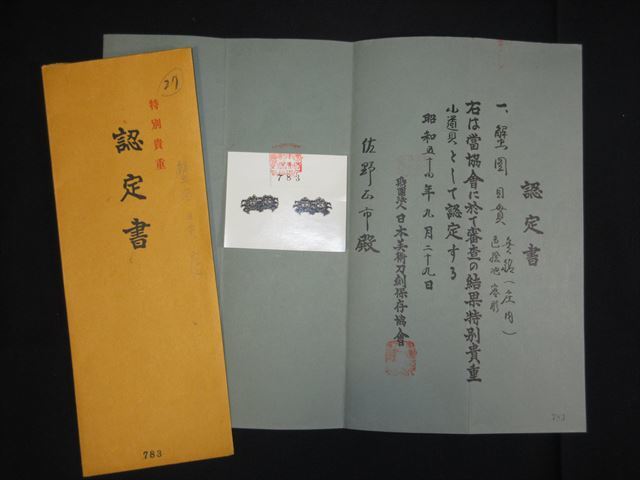 27
特別貴重
認定書
783
認定書
一、蟹圖 目貫 無銘(庄内)
地容彫
右は當協會に於て審査の結果特別貴重
小道具として認定する
昭和五十 年九月二十九日
財團法人日本美術刀劍保存協會
佐野正市殿
783
783